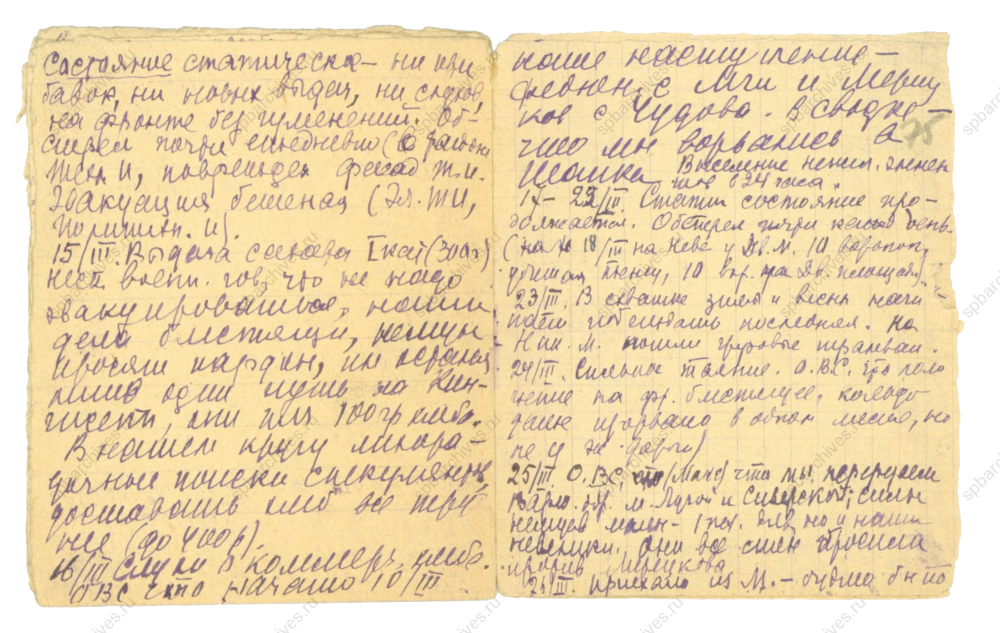 Состояние статическое – ни при
бавок, ни новых выдач, ни слухов,
на фронте без изменений. Об-
стрел почти ежедневно (в районе
Техн. И, поврежден фасад Т.И.
Эвакуация бешеная (Эл. ТИ,
Политехн. И).
15/III. Выдача сахара I кат (300 г)
Нек воен. гов, что не надо
эвакуироваться, наши
дела блестящи, немцы
просят пардон, им остался
лишь один путь на Кин-
гисепп, они или 100 гр хлеба.
В нашем кругу лихора-
дочные поиски спекулянтов,
доставать хлеб все труд
нее (до 400 р).
16/III Слухи о коммерч. хлебе.
ОВС что начато 10/III
наше наступление –
Федюн. с Мги и Мерец
ков с Чудова. В сводке –
что мы ворвались в
75
Выселение неншл. элемен
тов в 24 часа.
17 – 22/III. Статич состояние про-
должается. Обстрел почти каждый день.
18/III на Неве у Дв. М. 10 воронок,
10 вор. на Дв. площади).
23/III. В схватке зимы и весны начи
нает побеждать последняя. На
пошли грузовые трамваи.
24/III. Сильное таяние. О.В.С. что поло
жение на фр. блестящее, кольцо
даже прорвано в одном месте, но
не у жд. дороги)
25/III О. ВС, что что мы перерезали
м. Лугой и Сиверской; силы
немцев но и наши
невелики, они все силы бросили
прорыв Мерецкова
26/III. Приехало из М. – будто бы по